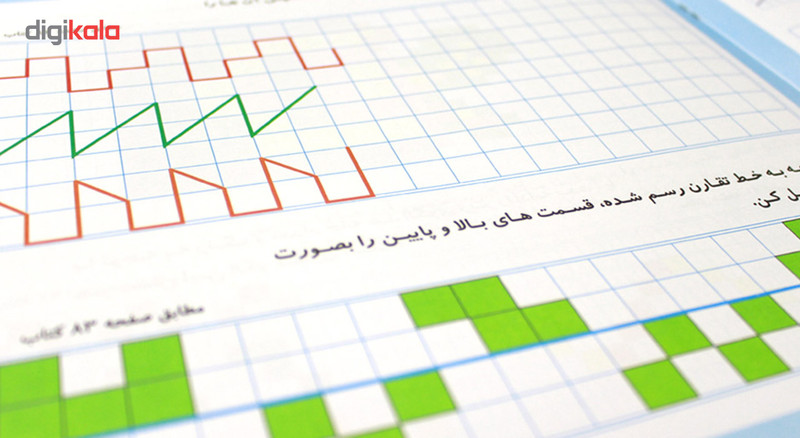 digikala
ـه به خط تقارن رسم شده، قسمت های بالا و پایین را بصورت
ـل کن.
مطابق صفحه ۸۳ کتاب